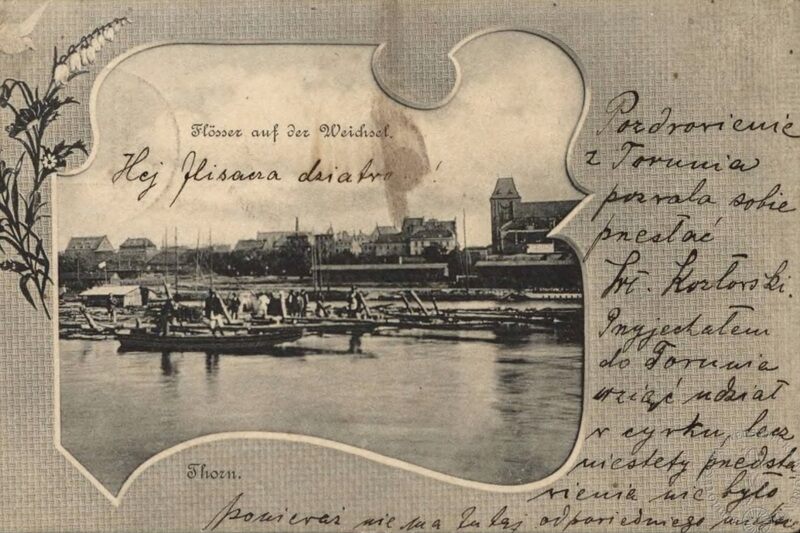 Flösser auf der Weichsel.
Hej flisacza dziatwo!
Thorn.
Pozdrowienie
z Torunia
pozwala sobie
przesłać
Wł. Kozłowski.
Przyjechałem
do Torunia
wziąć udział
w cyrku, lecz
niestety przedsta
wienia nie było
ponieważ nie ma tutaj odpowiedniego